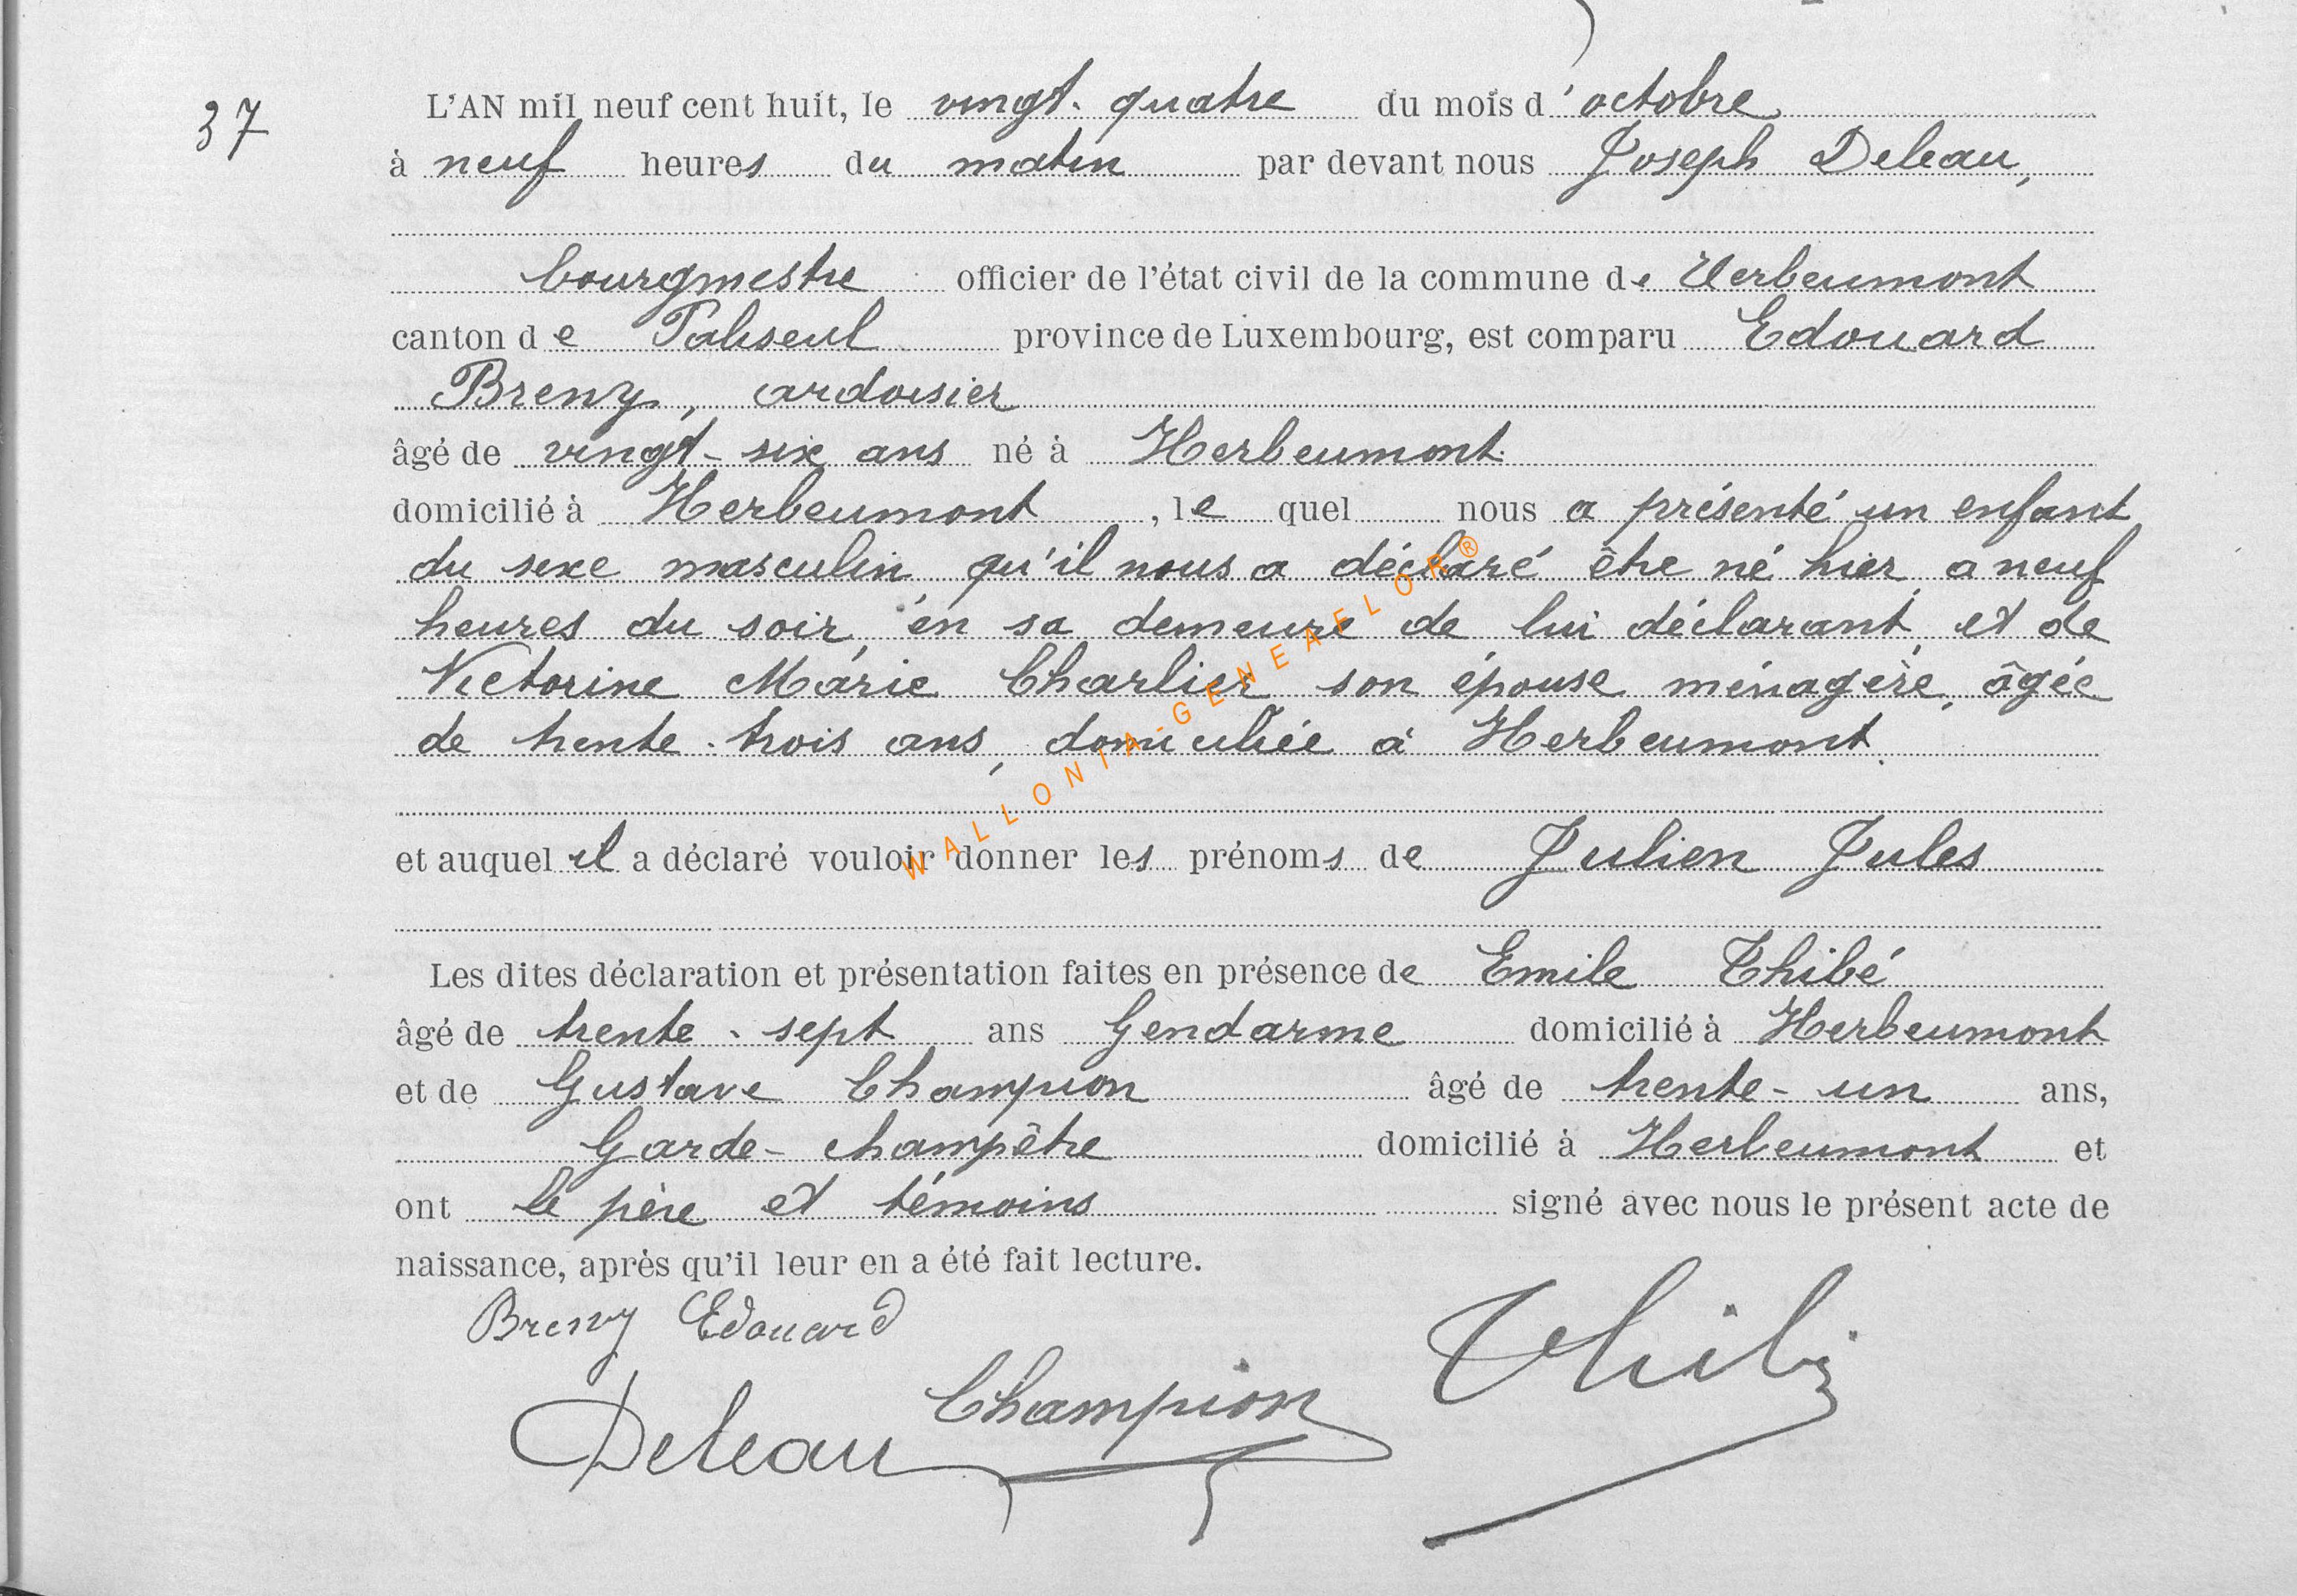 37
L'AN mil neuf cent huit, le vingt-quatre du mois d'octobre
à neuf heures du matin par devant nous Joseph Deleau,
bourgmestre officier de l'état civil de la commune de Herbeumont
canton de Paliseul province de Luxembourg, est comparu Edouard
Breny, ardoisier
âgé de vingt-six ans né à Herbeumont.
domicilié à Herbeumont, lequel nous a présenté un enfant
du sexe masculin qu'il nous a déclaré être né hier, a neuf
heures du soir, en sa demeure de lui déclarant, et de
Victorine Marie Charlier son épouse ménagère, âgée
de trente-trois ans, domiciliée à Herbeumont.
et auquel il a déclaré vouloir donner les prénoms de Julien Jules
Les dites déclaration et présentation faites en présence de Emile Thibé
âgé de trente-sept ans Gendarme domicilié à Herbeumont
et de Gustave Champion âgé de trente-un ans,
Garde-champêtre domicilié à Herbeumont et
ont le père et témoins signé avec nous le présent acte de
naissance, après qu'il leur en a été fait lecture.
Breny Edouard
Thibé
Champion
Deleau
WALLONIA-GENEAFLOR®